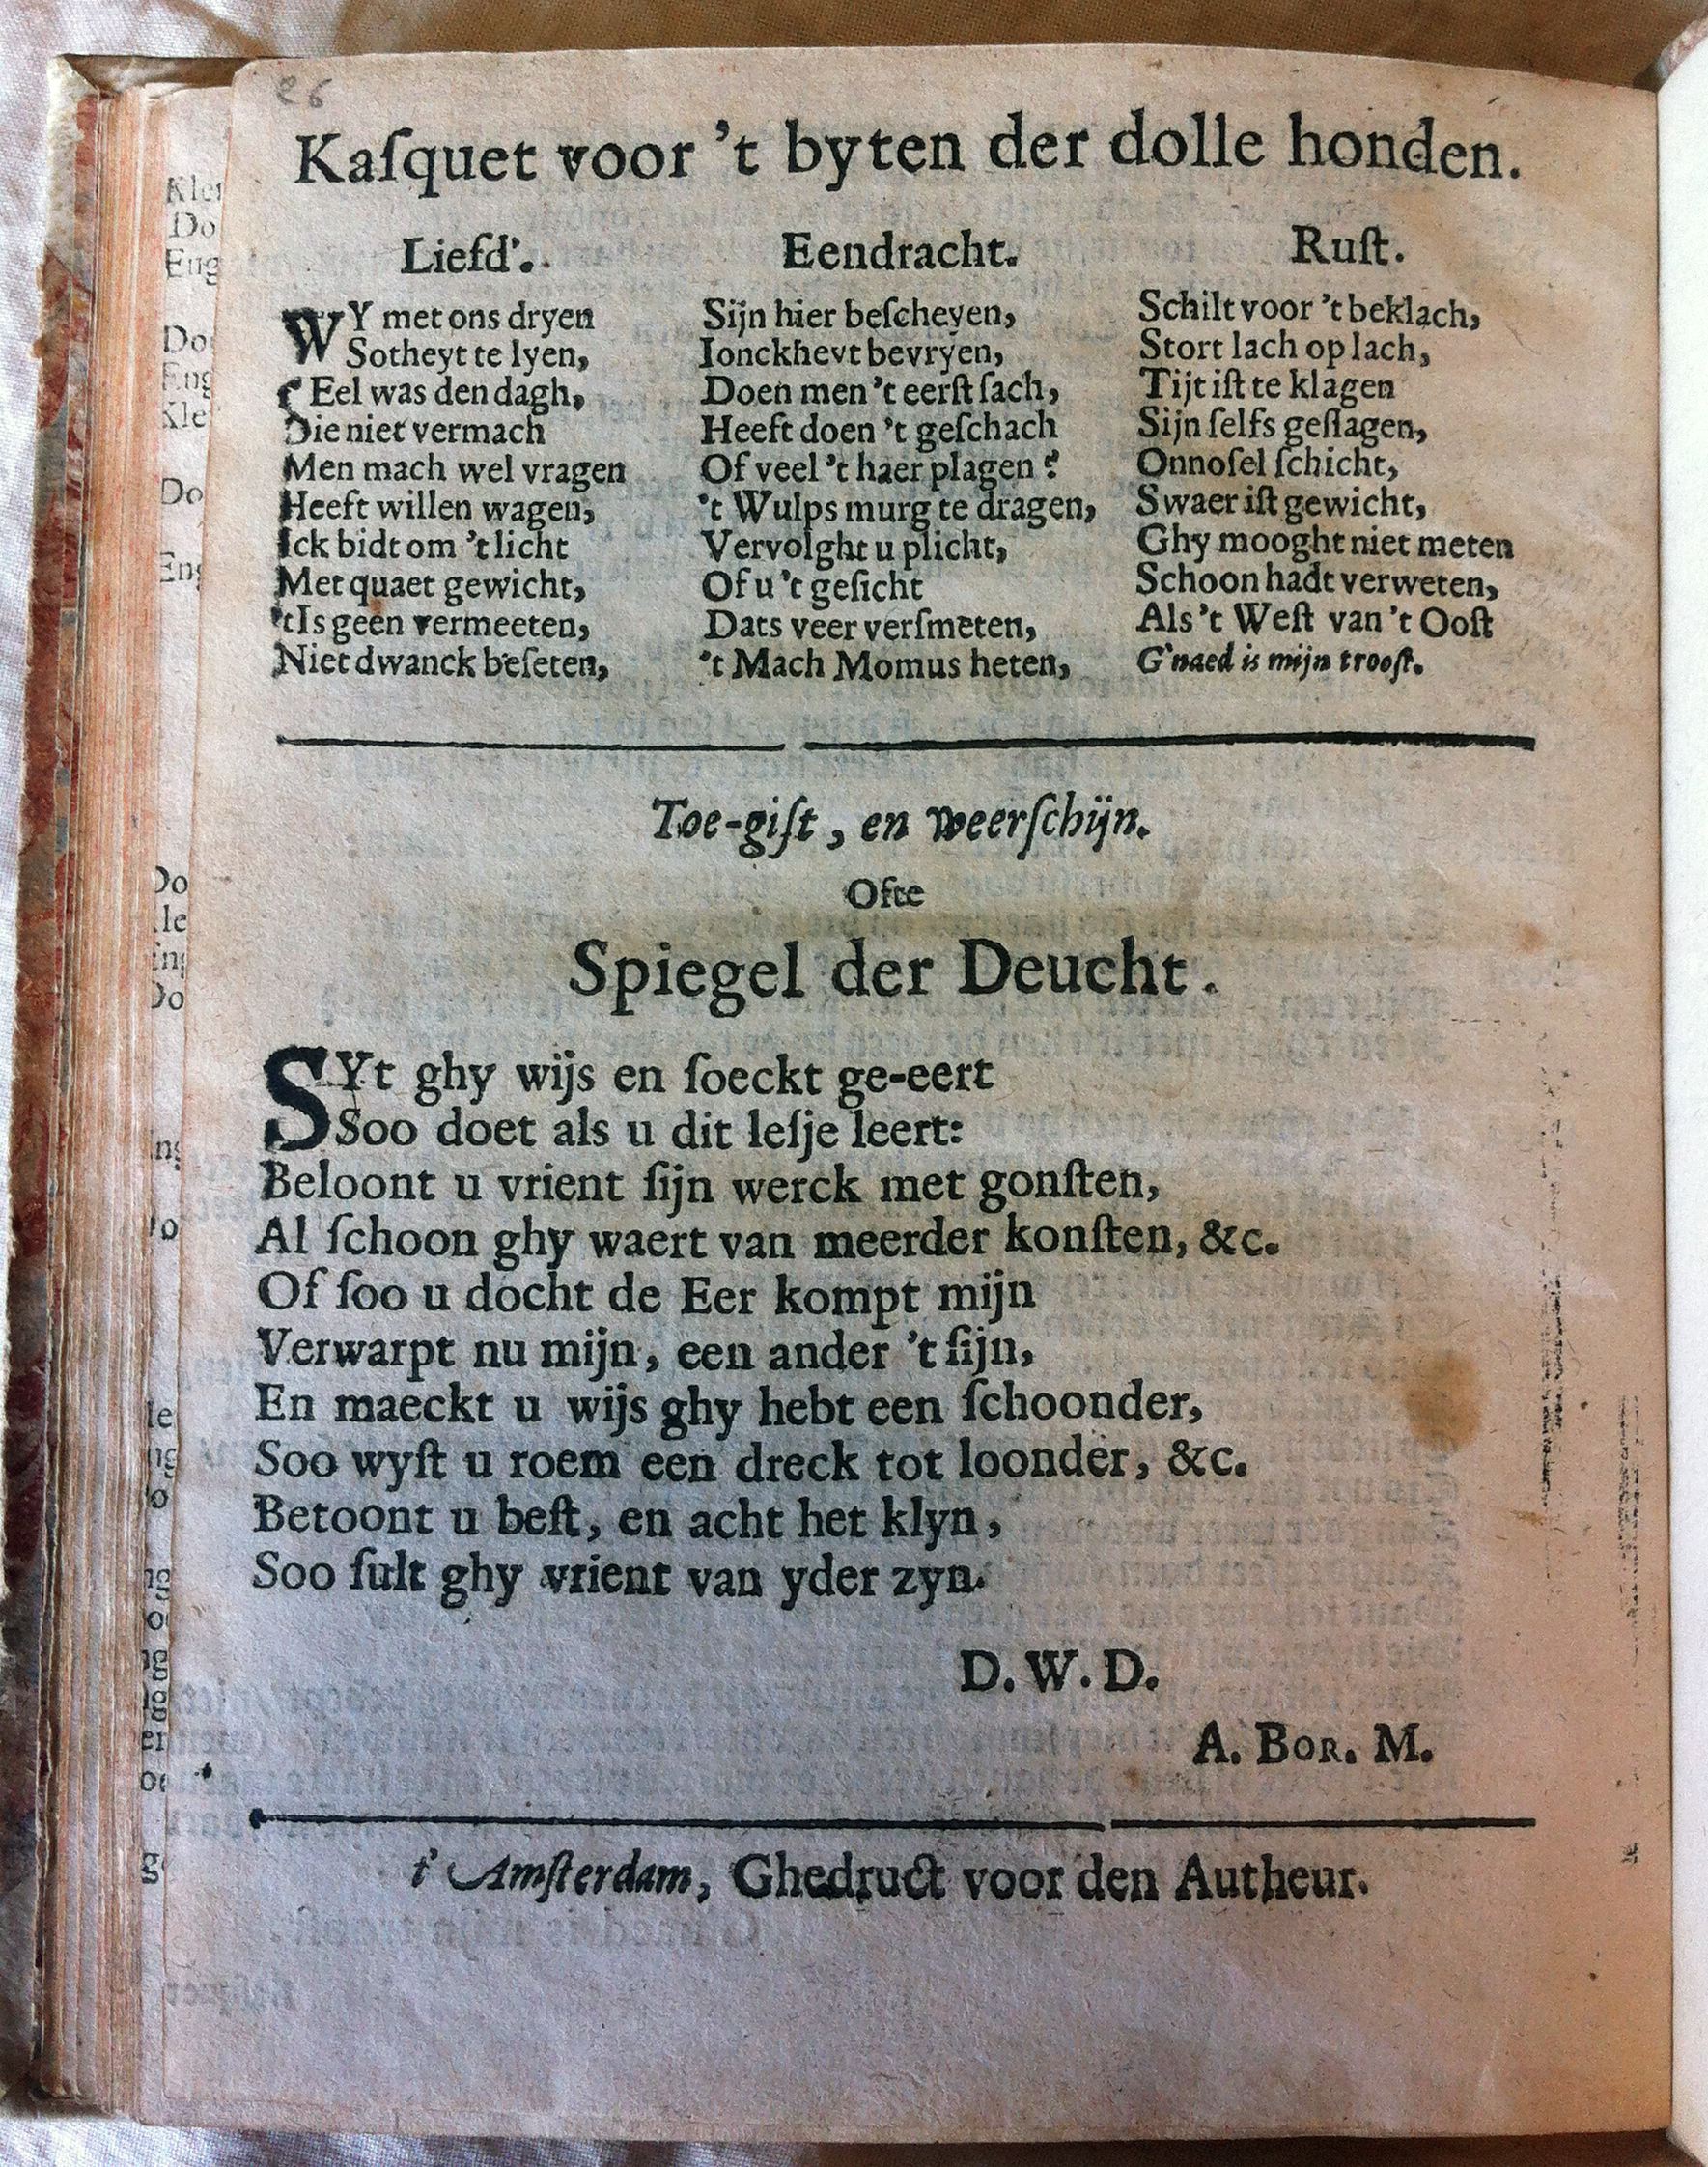 26
Kaſquet voor 't byten der dolle honden.
Liefd'.
WY met ons dryen
Sotheyt te lyen,
Eel was den dagh,
Die niet vermach
Men mach wel vragen
Heeft willen wagen,
Ick bidt om 't licht
Met quaet gewicht,
'tIs geen vermeeten,
Niet dwanck beſeten,
Eendracht.
Sijn hier beſcheyen,
Ionckheyt bevryen,
Doen men 't eerſt ſach,
Heeft doen 't geſchach
Of veel 't haer plagen?
't Wulps murg te dragen,
Vervolght u plicht,
Of u 't geſicht
Dats veer verſmeten,
't Mach Momus heten,
Ruſt.
Schilt voor 't beklach,
Stort lach op lach,
Tijt iſt te klagen
Sijn ſelfs geſlagen,
Onnoſel ſchicht,
Swaer iſt gewicht,
Ghy mooght niet meten
Schoon hadt verweten,
Als 't Weſt van 't Ooſt
G'naed is mijn trooſt.
Toe-gift, en weerſchijn.
Ofte
Spiegel der Deucht.
SYt ghy wijs en ſoeckt ge-eert
Soo doet als u dit leſje leert:
Beloont u vrient ſijn werck met gonſten,
Al ſchoon ghy waert van meerder konſten, &c.
Of ſoo u docht de Eer kompt mijn
Verwarpt nu mijn, een ander 't ſijn,
En maeckt u wijs ghy hebt een ſchoonder,
Soo wyſt u roem een dreck tot loonder, &c.
Betoont u beſt, en acht het klyn,
Soo ſult ghy vrient van yder zyn.
D. W. D.
A. BOR. M.
t' Amſterdam, Ghedruct voor den Autheur.